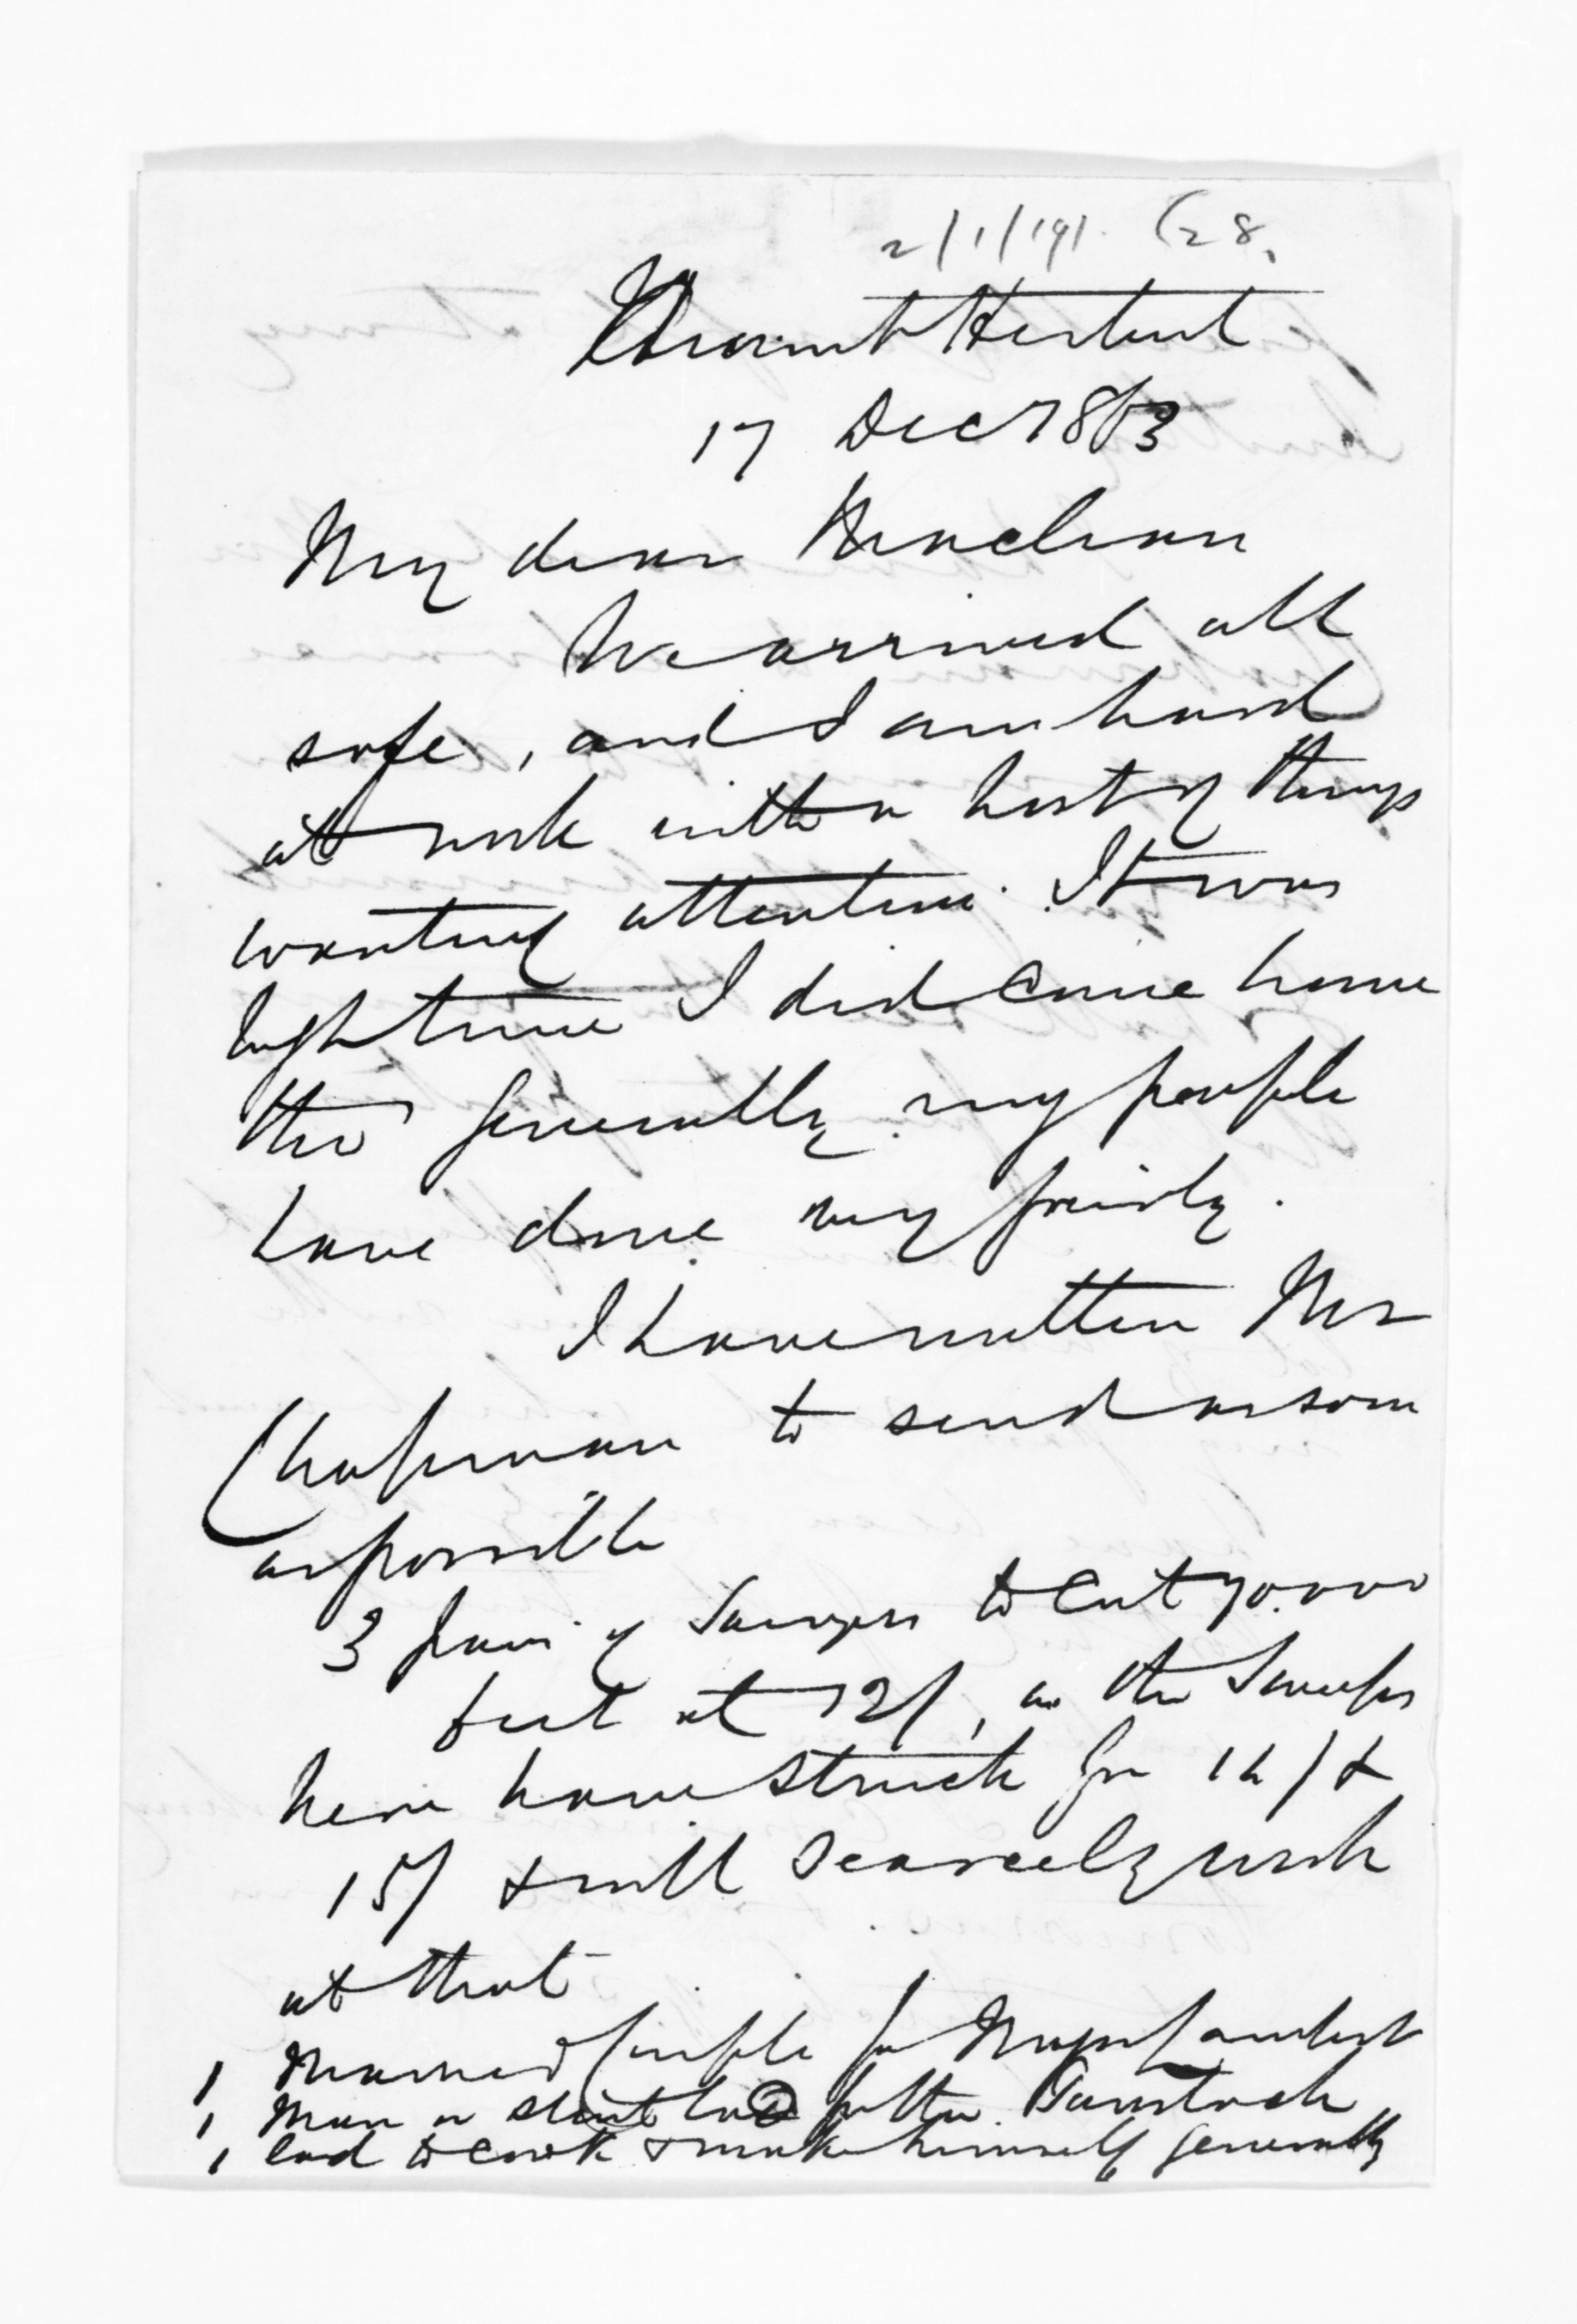 2/1/191. (28.
Mount Herbert
17 Dec 1863
My dear Maclean
We arrived all
safe, and I am hard
at work with a host of things
wanting attention. It was
high time I did come home
tho' generally my people
have done very fairly.
I have written Mr
Chapman to send as soon
as possible
3 pair of Sawyers to cut 70.000
feet at 12/, as the Sawyers
here have struck for 14/ &
15/ & will scarcely work
at that
1 Married couple for
1 Man or stout lad for the
1 lad to cook & make himself generally